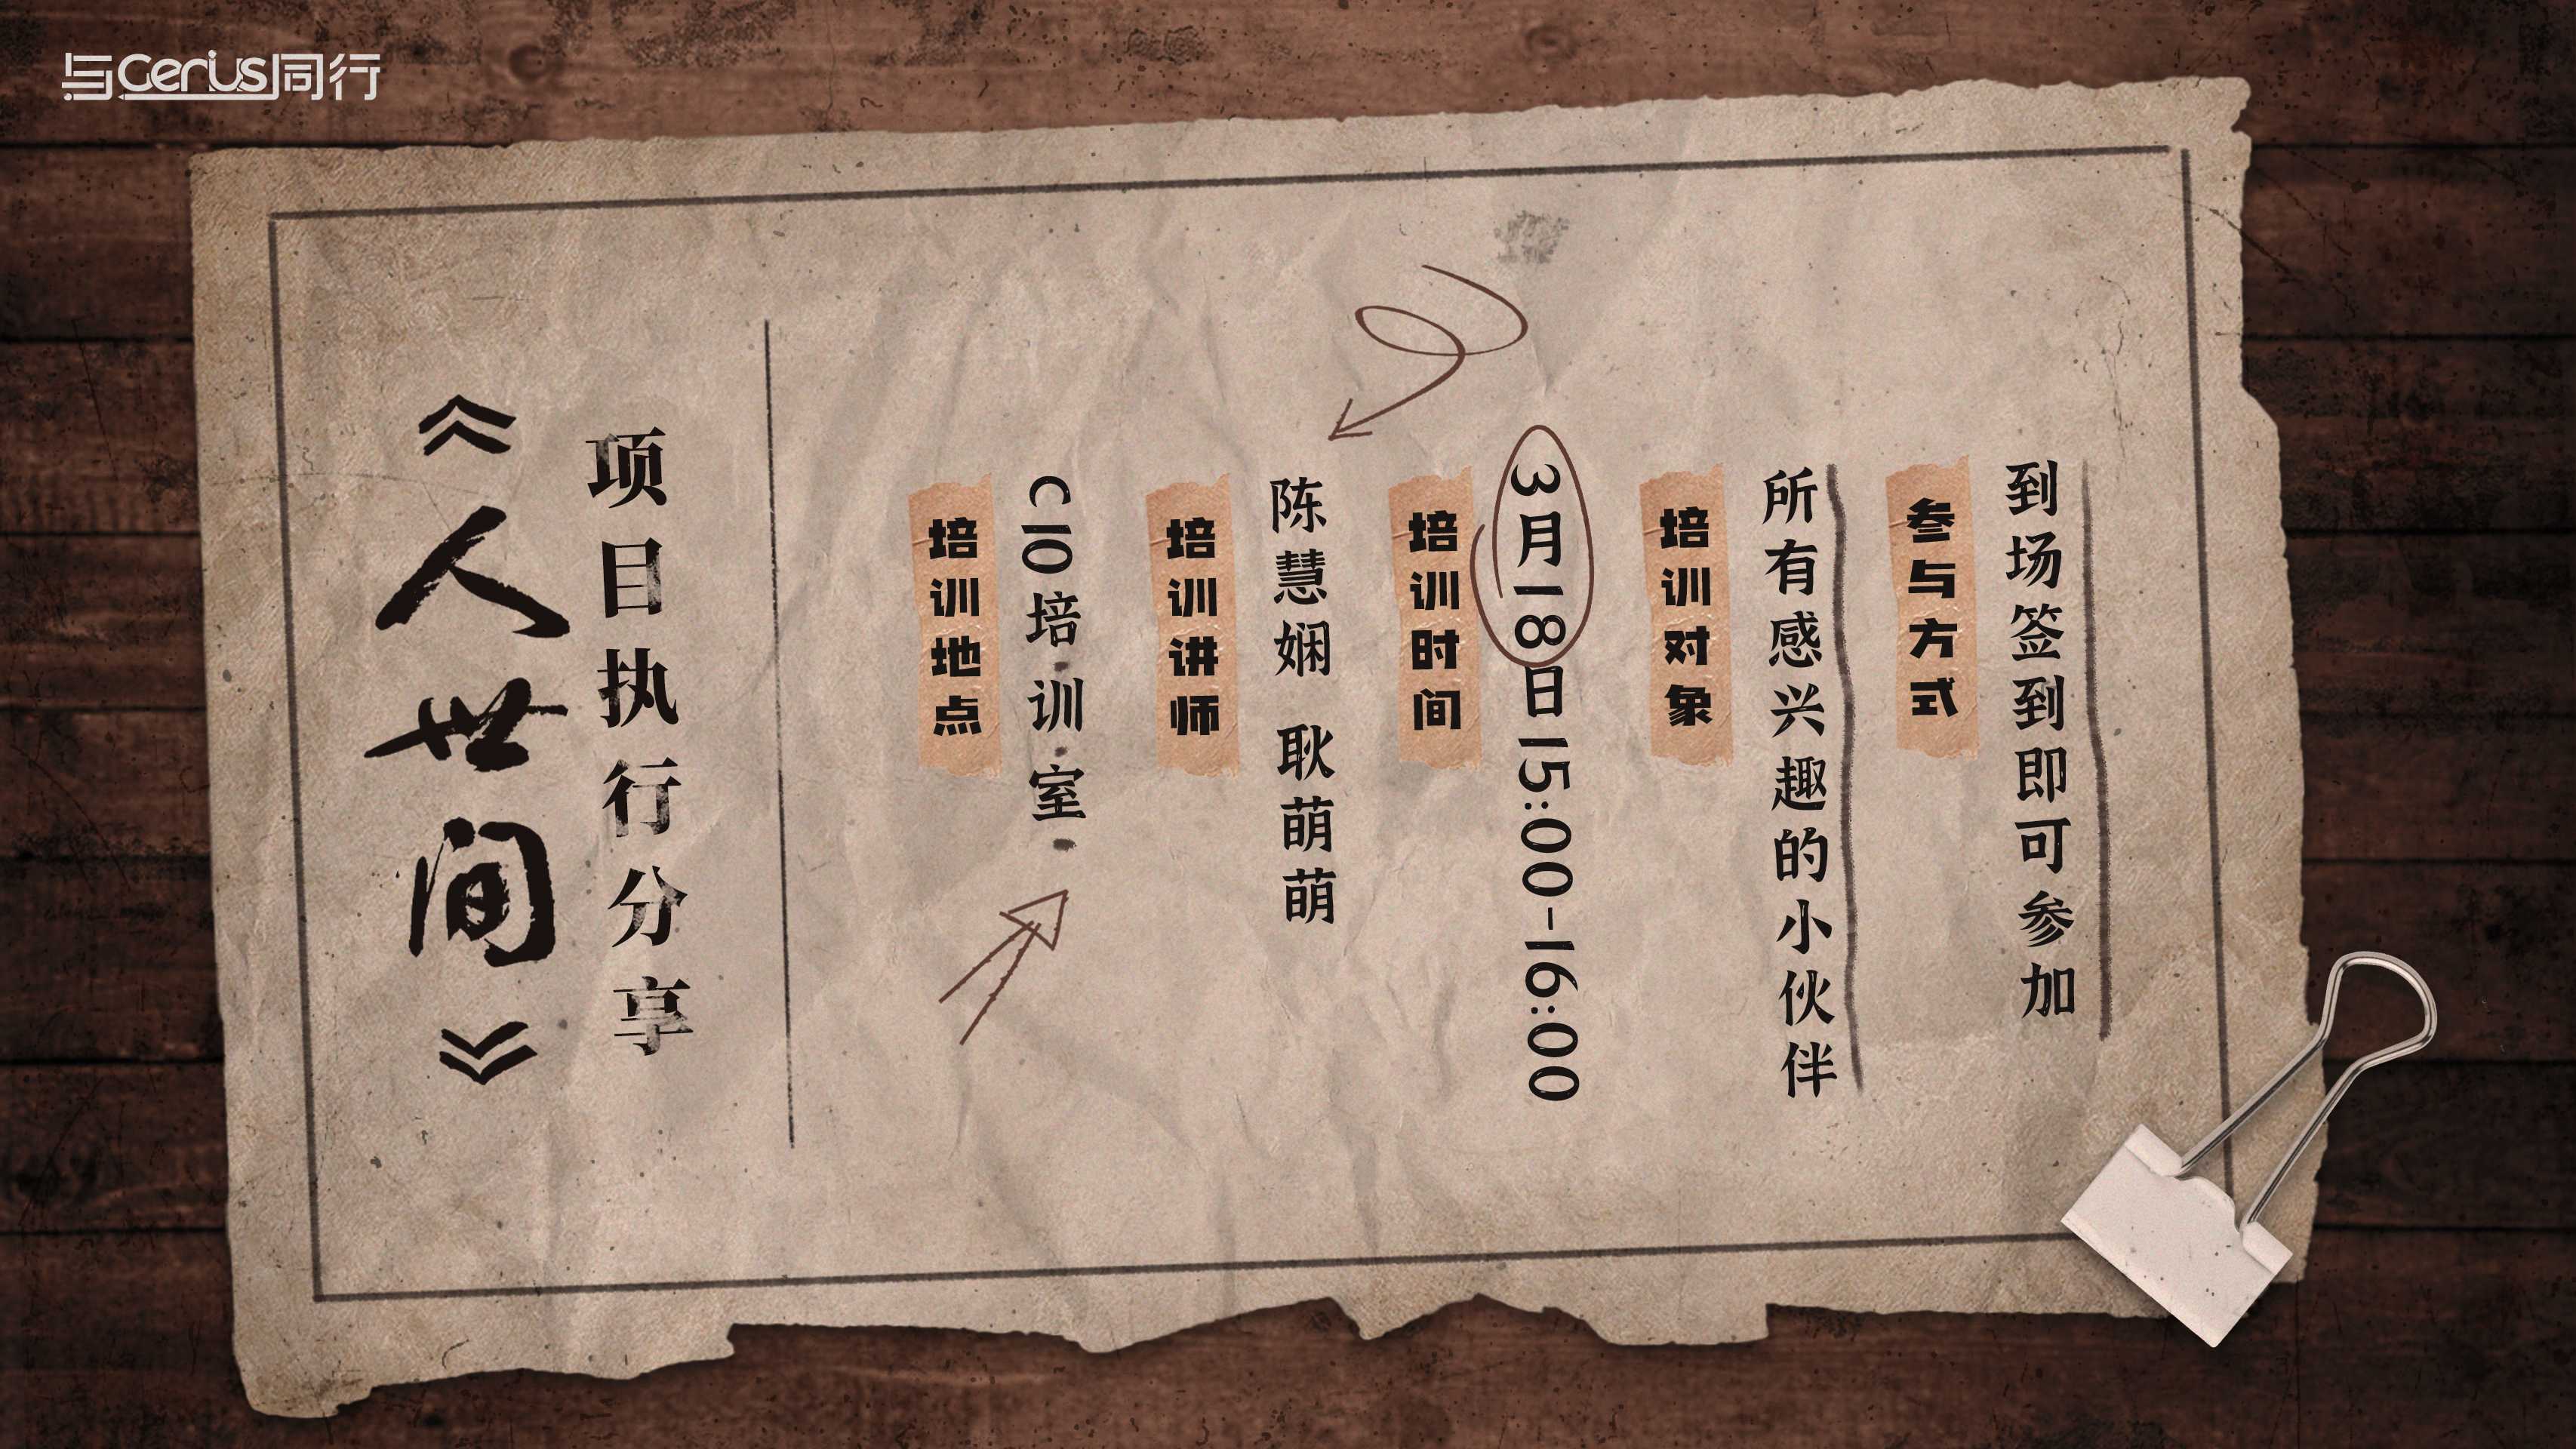 与Cerius同行
《人世间》
项目执行分享
培训地点
C10培训室
培训讲师
陈慧娴 耿萌萌
培训时间
3月18日15:00-16:00
培训对象
所有感兴趣的小伙伴
参与方式
到场签到即可参加